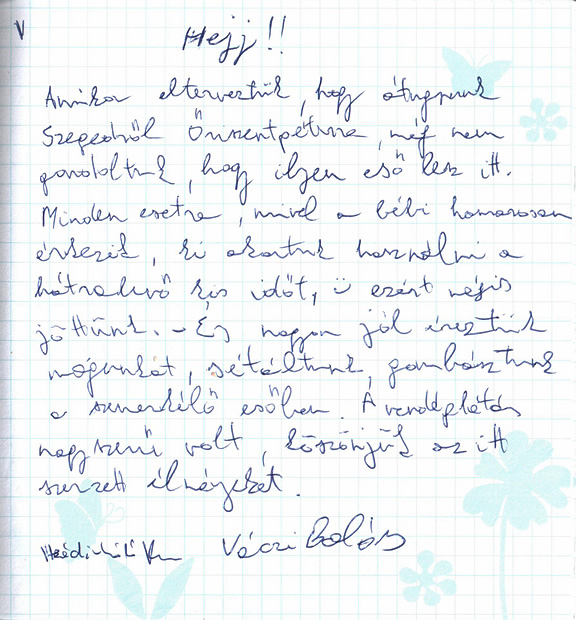 Hejj!!
Amikor elterveztük, hogy átugrunk
Szegedről Őriszentpéterre, még nem
gondoltuk, hogy ilyen eső lesz itt.
Minden esetre, mivel a bébi hamarosan
érkezik, ki akartuk használni a
hátralevő kis időt, ü ezért mégis
jöttünk. - És nagyon jól éreztük
magunkat, sétáltunk, gombásztunk
a szemerkélő esőben. A vendéglátás
nagyszerű volt, köszönjük az itt
szerzett élményeket.
Váczi Balázs